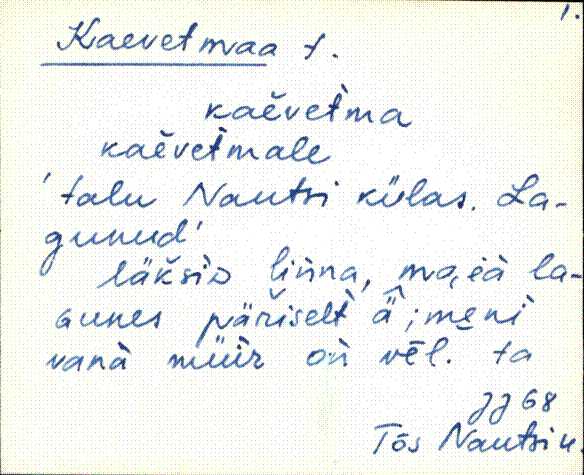 1.
Kaevetmaa t.
kaèvetmà
kaèvetmàle
'talu Nautsi külas. La-
gunud'
läksiD liǹna, maeà la-
Gunes päriselt ä; meni
vanà müür oǹ vēl. ta
JJ 68
Tõs Nautsi u